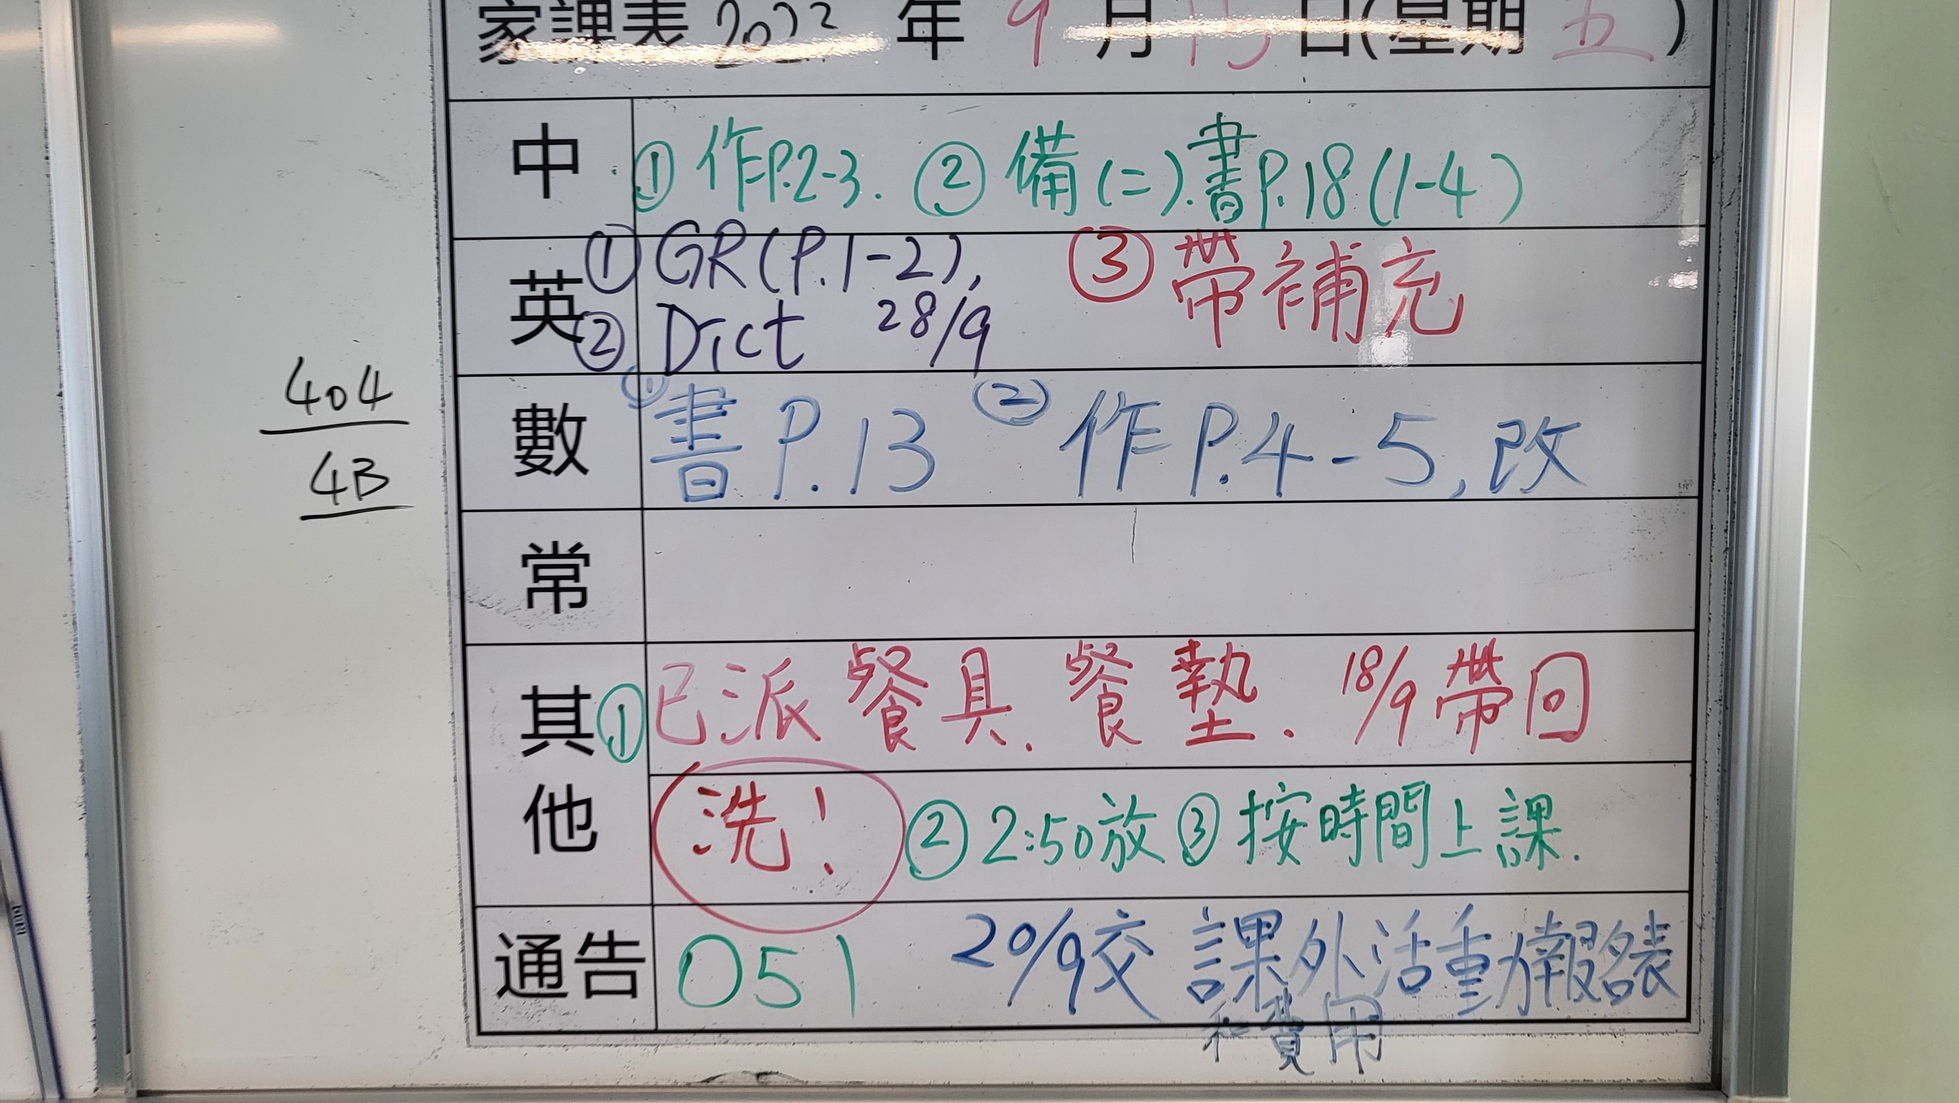 家課表 2023 年 9 月 15 日(星期 五)
中 ① 作P.2-3. ② 備(二).書P.18(1-4)
英 ① GR(P.1-2), ③ 帶補充
② Dict 28/9
404
4B
數 ① 書 P.13 ② 作 P.4-5,改
常
其他 ① 已派餐具、餐墊. 18/9帶回
洗! ② 2:50放 ③ 按時間上課.
通告 051 20/9交 課外活動報名表
和費用